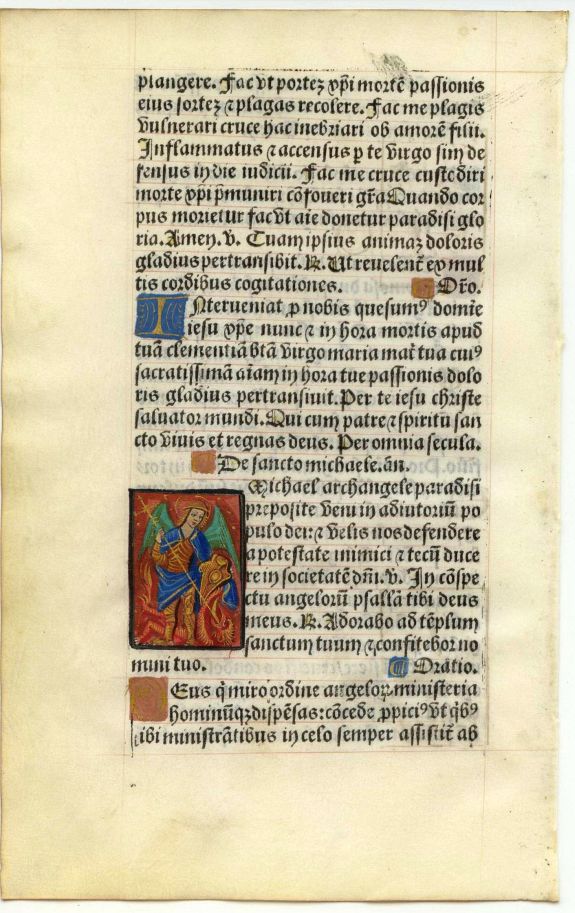 plangere. Fac vt portez xpi mortē passionis
eius sortez ⁊ plagas recolere. Fac me plagis
vulnerari cruce hac inebriari ob amorē filii.
Inflammatus ⁊ accensus p te virgo sim de
fensus in die iudicii. Fac me cruce custodiri
morte xpi p̄muniri cōfoueri gr̄a Quando cor
pus morietur fac vt aīe donetur paradisi glo
ria. Amen. v. Tuam ipsius animaz doloris
gladius pertransibit. R. Ut reuelent̄ ex mul
tis cordibus cogitationes. Or̄o.
INterueniat p nobis quesumꝰ domīe
iesu xp̄e nunc ⁊ in hora mortis apud
tuā clementiā btā virgo maria mat̄ tua cuiꝰ
sacratissimā aīam in hora tue passionis dolo
ris gladius pertransiuit. Per te iesu christe
saluator mundi. Qui cum patre ⁊ spiritu san
cto viuis et regnas deus. Per omnia secula.
De sancto michaele. ān.
Michael archangele paradisi
preposite veni in adiutoriū po
pulo dei: ⁊ velis nos defendere
a potestate inimici ⁊ tecū duce
re in societatē dn̄i. v. In cōspe
ctu angelorū psallā tibi deus
meus. R. Adorabo ad tēplum
sanctum tuum ⁊ confitebor no
mini tuo. Oratio.
DEus q̄ miro ordine angeloꝝ ministeria
hominūqz dispēsas: cōcede ppiciꝰ vt qbꝰ
tibi ministrātibus in celo semper assistit̄ ab